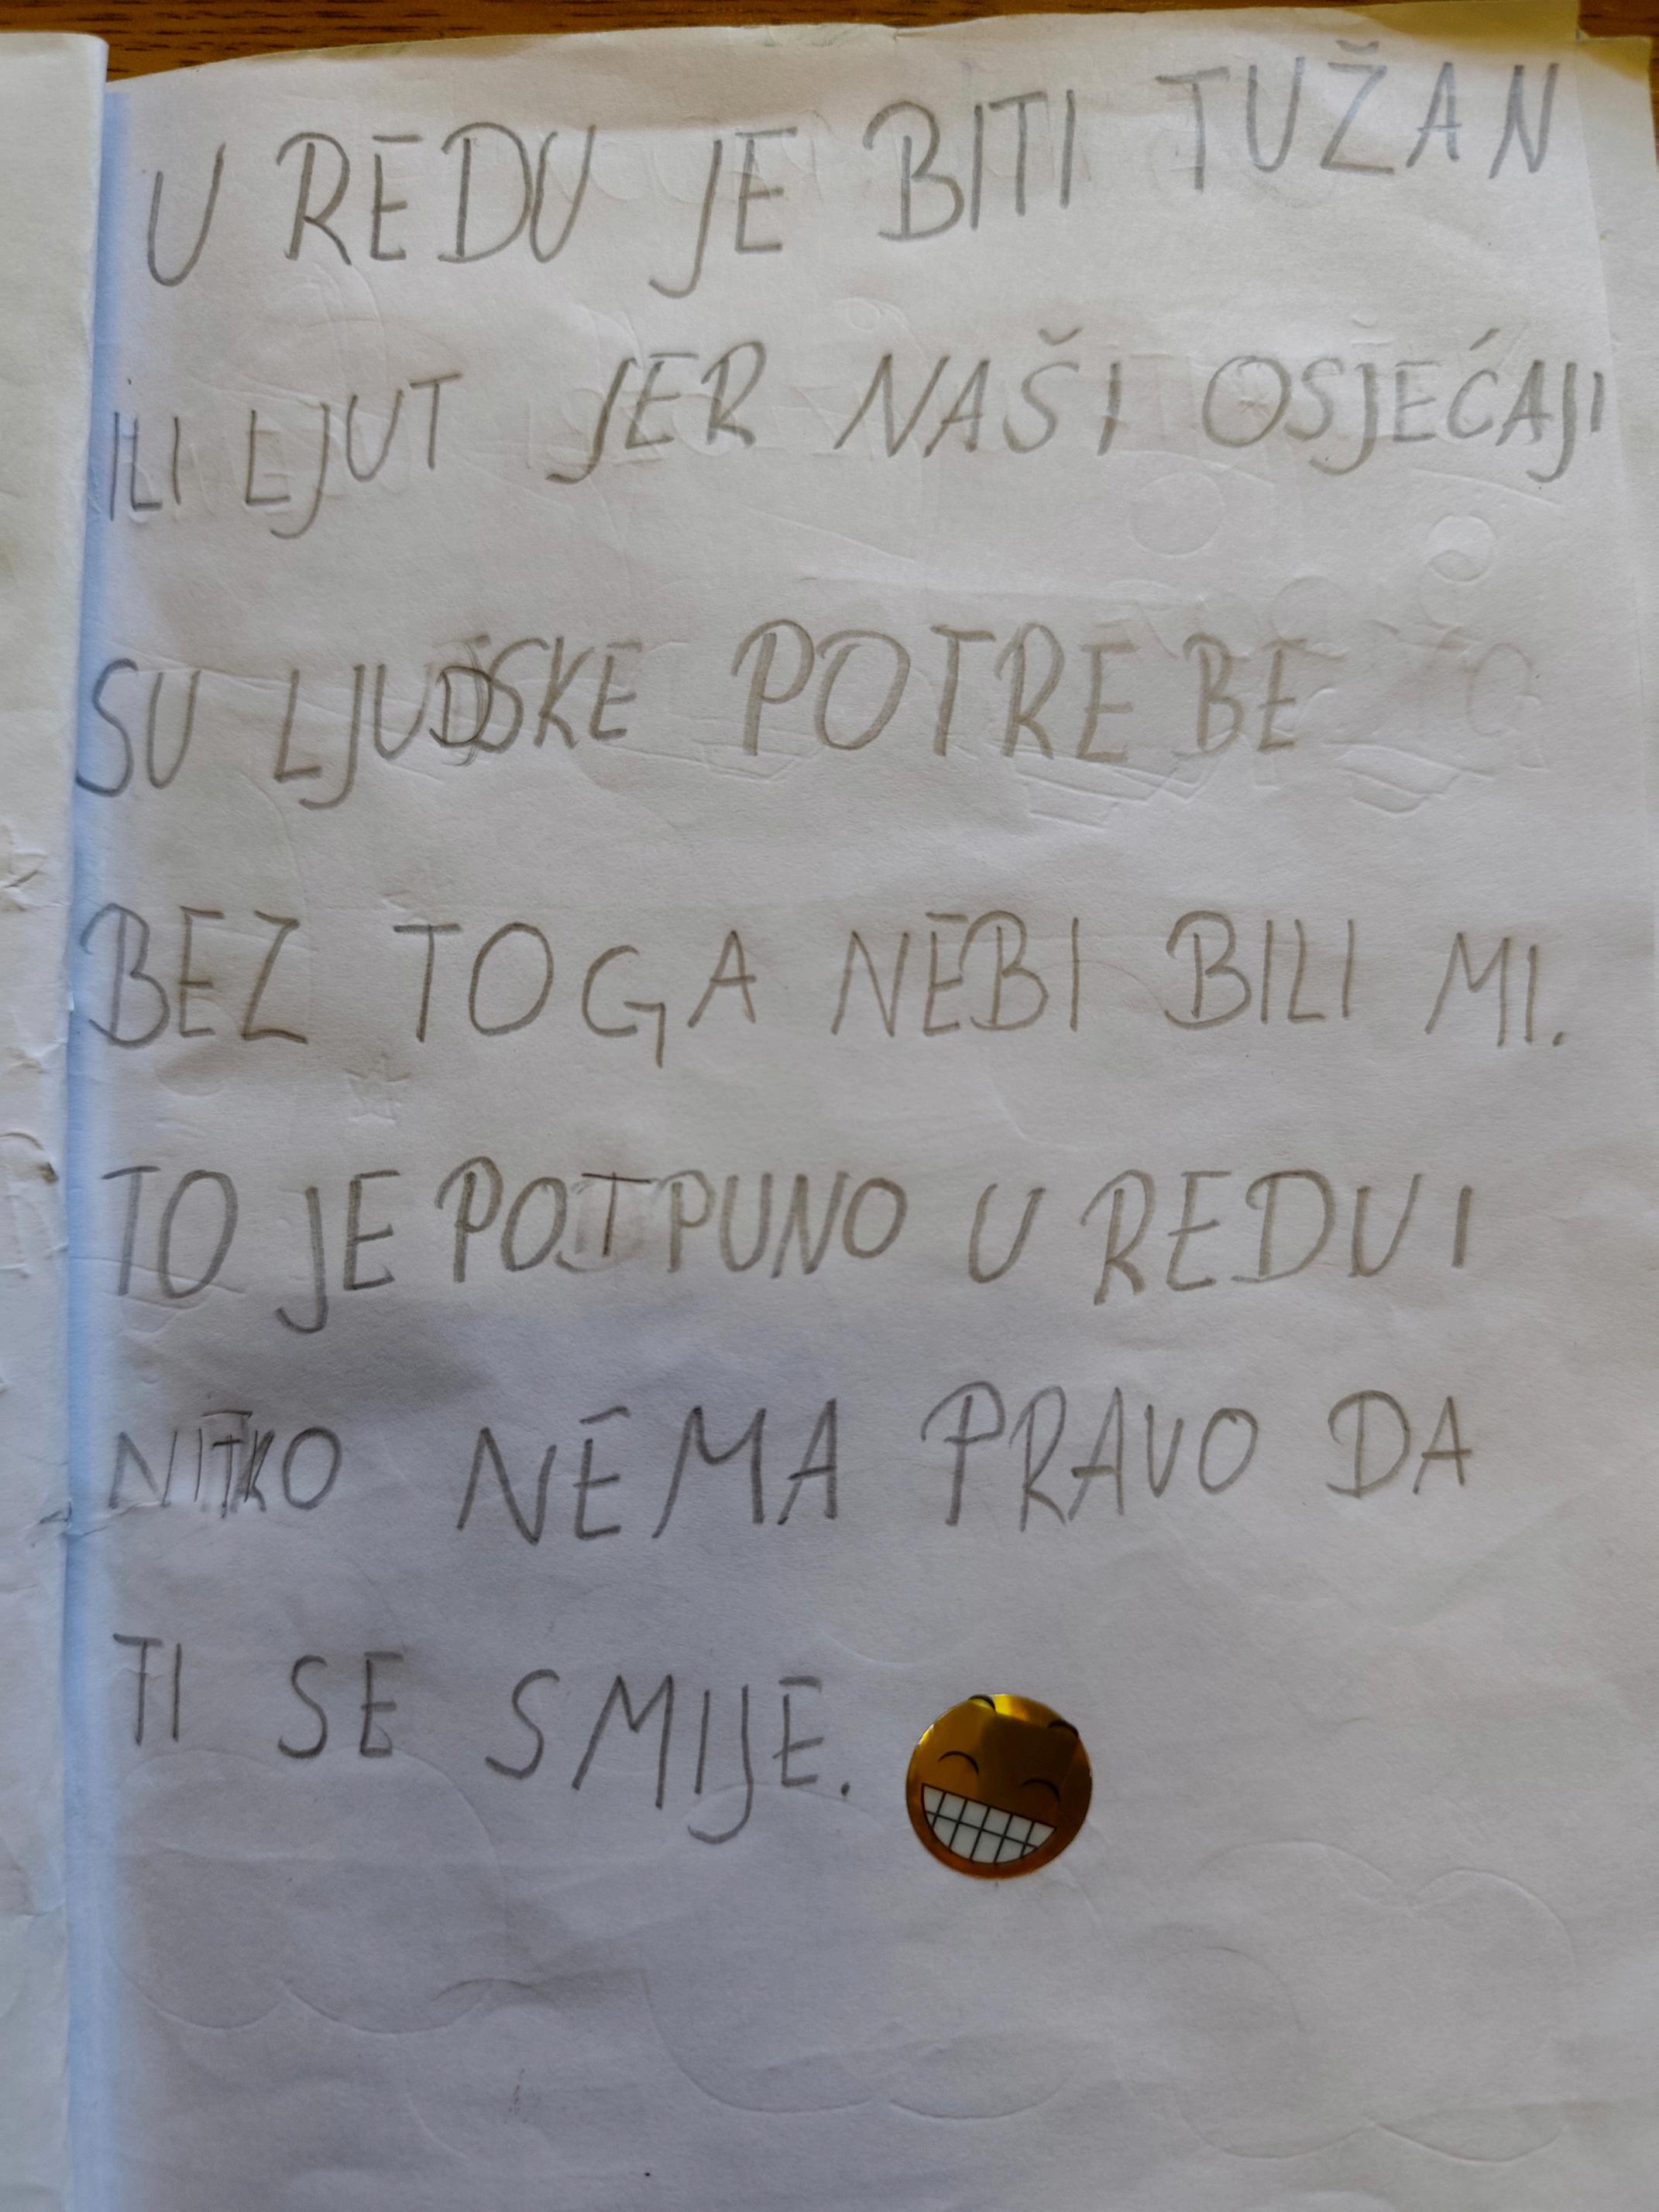 U REDU JE BITI TUŽAN
ILI LJUT JER NAŠI OSJEĆAJI
SU LJUDSKE POTREBE
BEZ TOGA NEBI BILI MI.
TO JE POTPUNO U REDU I
NITKO NEMA PRAVO DA
TI SE SMIJE.